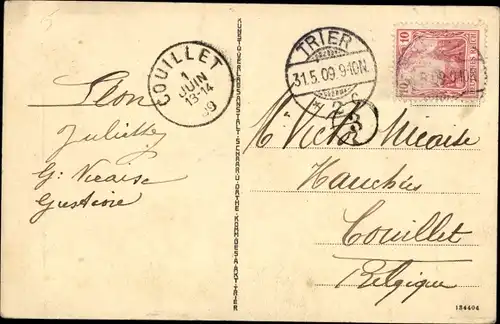 COUILLET
1
JUIN
13-14
09
TRIER
31.5.09.9-10N.
* 2 c
10
DEUTSCHES REICH
Léon
Juliette
G. Nicaise
Gustave
M. Victor Nicaise
Couillet
Belgique
KUNSTVERLAGSANSTALT SCHAAR & DATHE. KOMM.GES.A.AKT.TRIER
184404